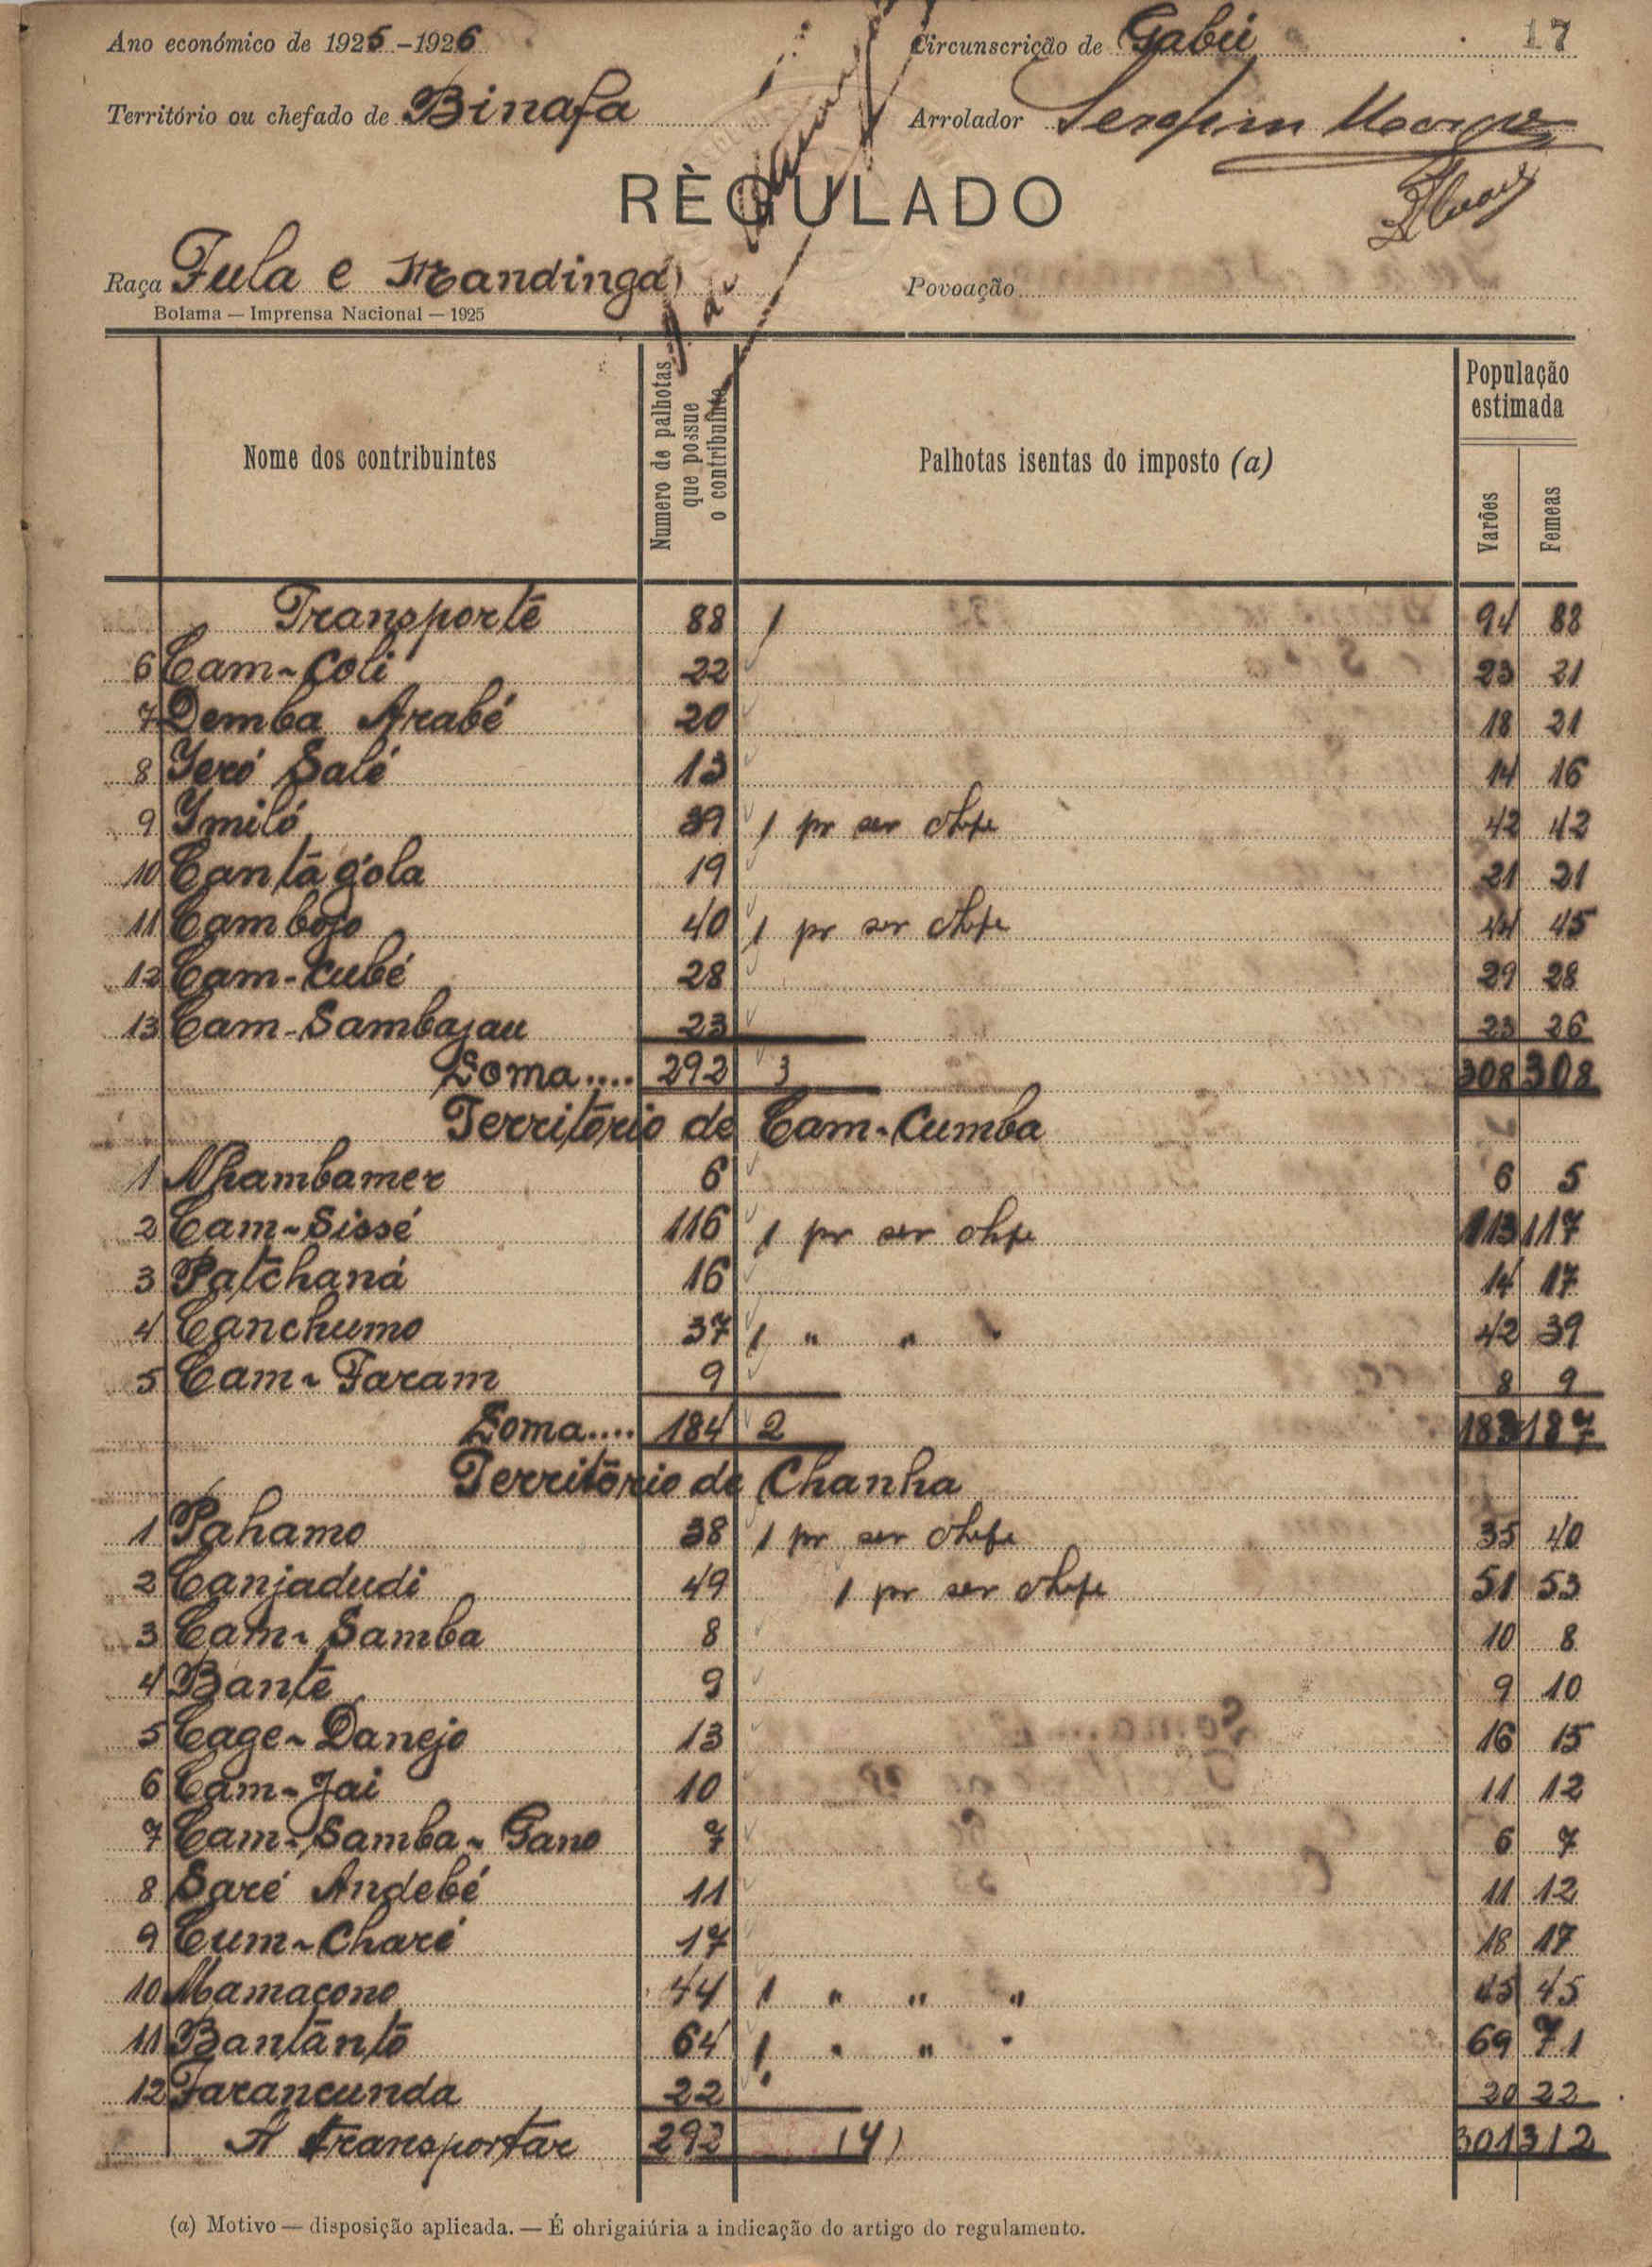 Ano económico de 1925-1926
Circunscrição de Gabú
17
Território ou chefado de Binafa
Arrolador Serafim
RÈGULADO
Raça Fula e Mandinga
Povoação
Bolama — Imprensa Nacional — 1925
Nome dos contribuintes
Numero de palhotas que possue o contribuinte
Palhotas isentas do imposto (a)
População estimada
Varões
Femeas
Transporte 88 1 94 88
6 Cam-Coli 22 23 21
7 Demba Arabé 20 18 21
8 Yeró Salé 13 14 16
9 Ymiló 39 1 pr ser chefe 42 42
10 Cantágóla 19 21 21
11 Cambojo 40 1 pr ser chefe 44 45
12 Cam-Cubé 28 29 28
13 Cam-Sambajau 23 23 26
Soma.... 292 3 308 308
Território de Cam-Cumba
1 Nhambamer 6 6 5
2 Cam-Sissé 116 1 pr ser chefe 113 117
3 Patchaná 16 14 17
4 Canchumo 37 1 " " " 42 39
5 Cam-Faram 9 8 9
Soma.... 184 2 183 187
Território de Chanha
1 Pahamo 38 1 pr ser chefe 35 40
2 Canjadudi 49 1 pr ser chefe 51 53
3 Cam-Samba 8 10 8
4 Bante 9 9 10
5 Cage-Danejo 13 16 15
6 Cam-Jai 10 11 12
7 Cam-Samba-Gano 7 6 7
8 Saré Andebé 11 11 12
9 Cum-Charé 17 18 17
10 Mamacono 44 1 " " " 45 45
11 Bantānto 64 1 " " " 69 71
12 Farancunda 22 20 22
A transportar 292 (4) 301 312
(a) Motivo — disposição aplicada. — É ohrigaiúria a indicação do artigo do regulamento.